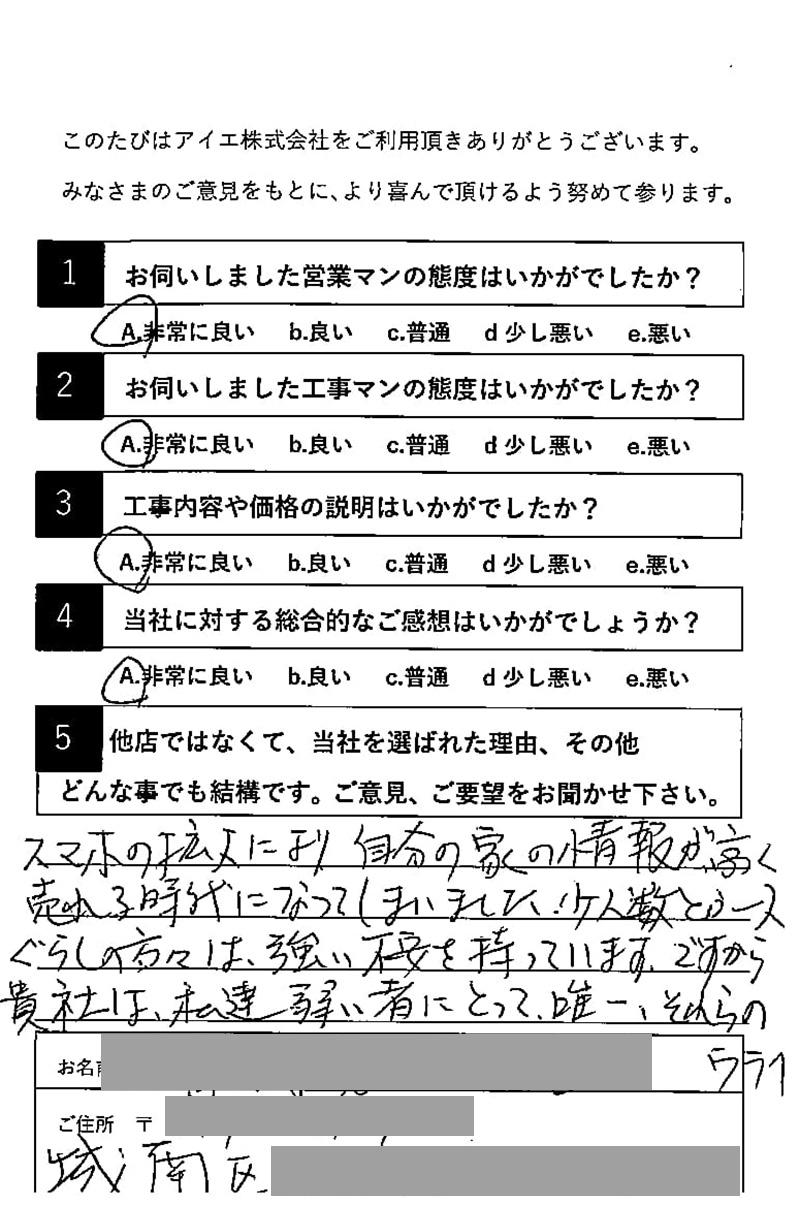 このたびはアイエ株式会社をご利用頂きありがとうございます。
みなさまのご意見をもとに、より喜んで頂けるよう努めて参ります。
1 お伺いしました営業マンの態度はいかがでしたか?
A.非常に良い b.良い c.普通 d 少し悪い e.悪い
2 お伺いしました工事マンの態度はいかがでしたか?
A.非常に良い b.良い c.普通 d 少し悪い e.悪い
3 工事内容や価格の説明はいかがでしたか?
A.非常に良い b.良い c.普通 d 少し悪い e.悪い
4 当社に対する総合的なご感想はいかがでしょうか?
A.非常に良い b.良い c.普通 d 少し悪い e.悪い
5 他店ではなくて、当社を選ばれた理由、その他
どんな事でも結構です。ご意見、ご要望をお聞かせ下さい。
スマホの拡大により自分の家の情報が、高く
売れる時代になってしまいました、少人数と
ぐらしの方々は、強い不安を持っています、ですから
貴社は、私達弱い者にとって、唯一、それらの
ウライ
お名前
ご住所 〒
城南区